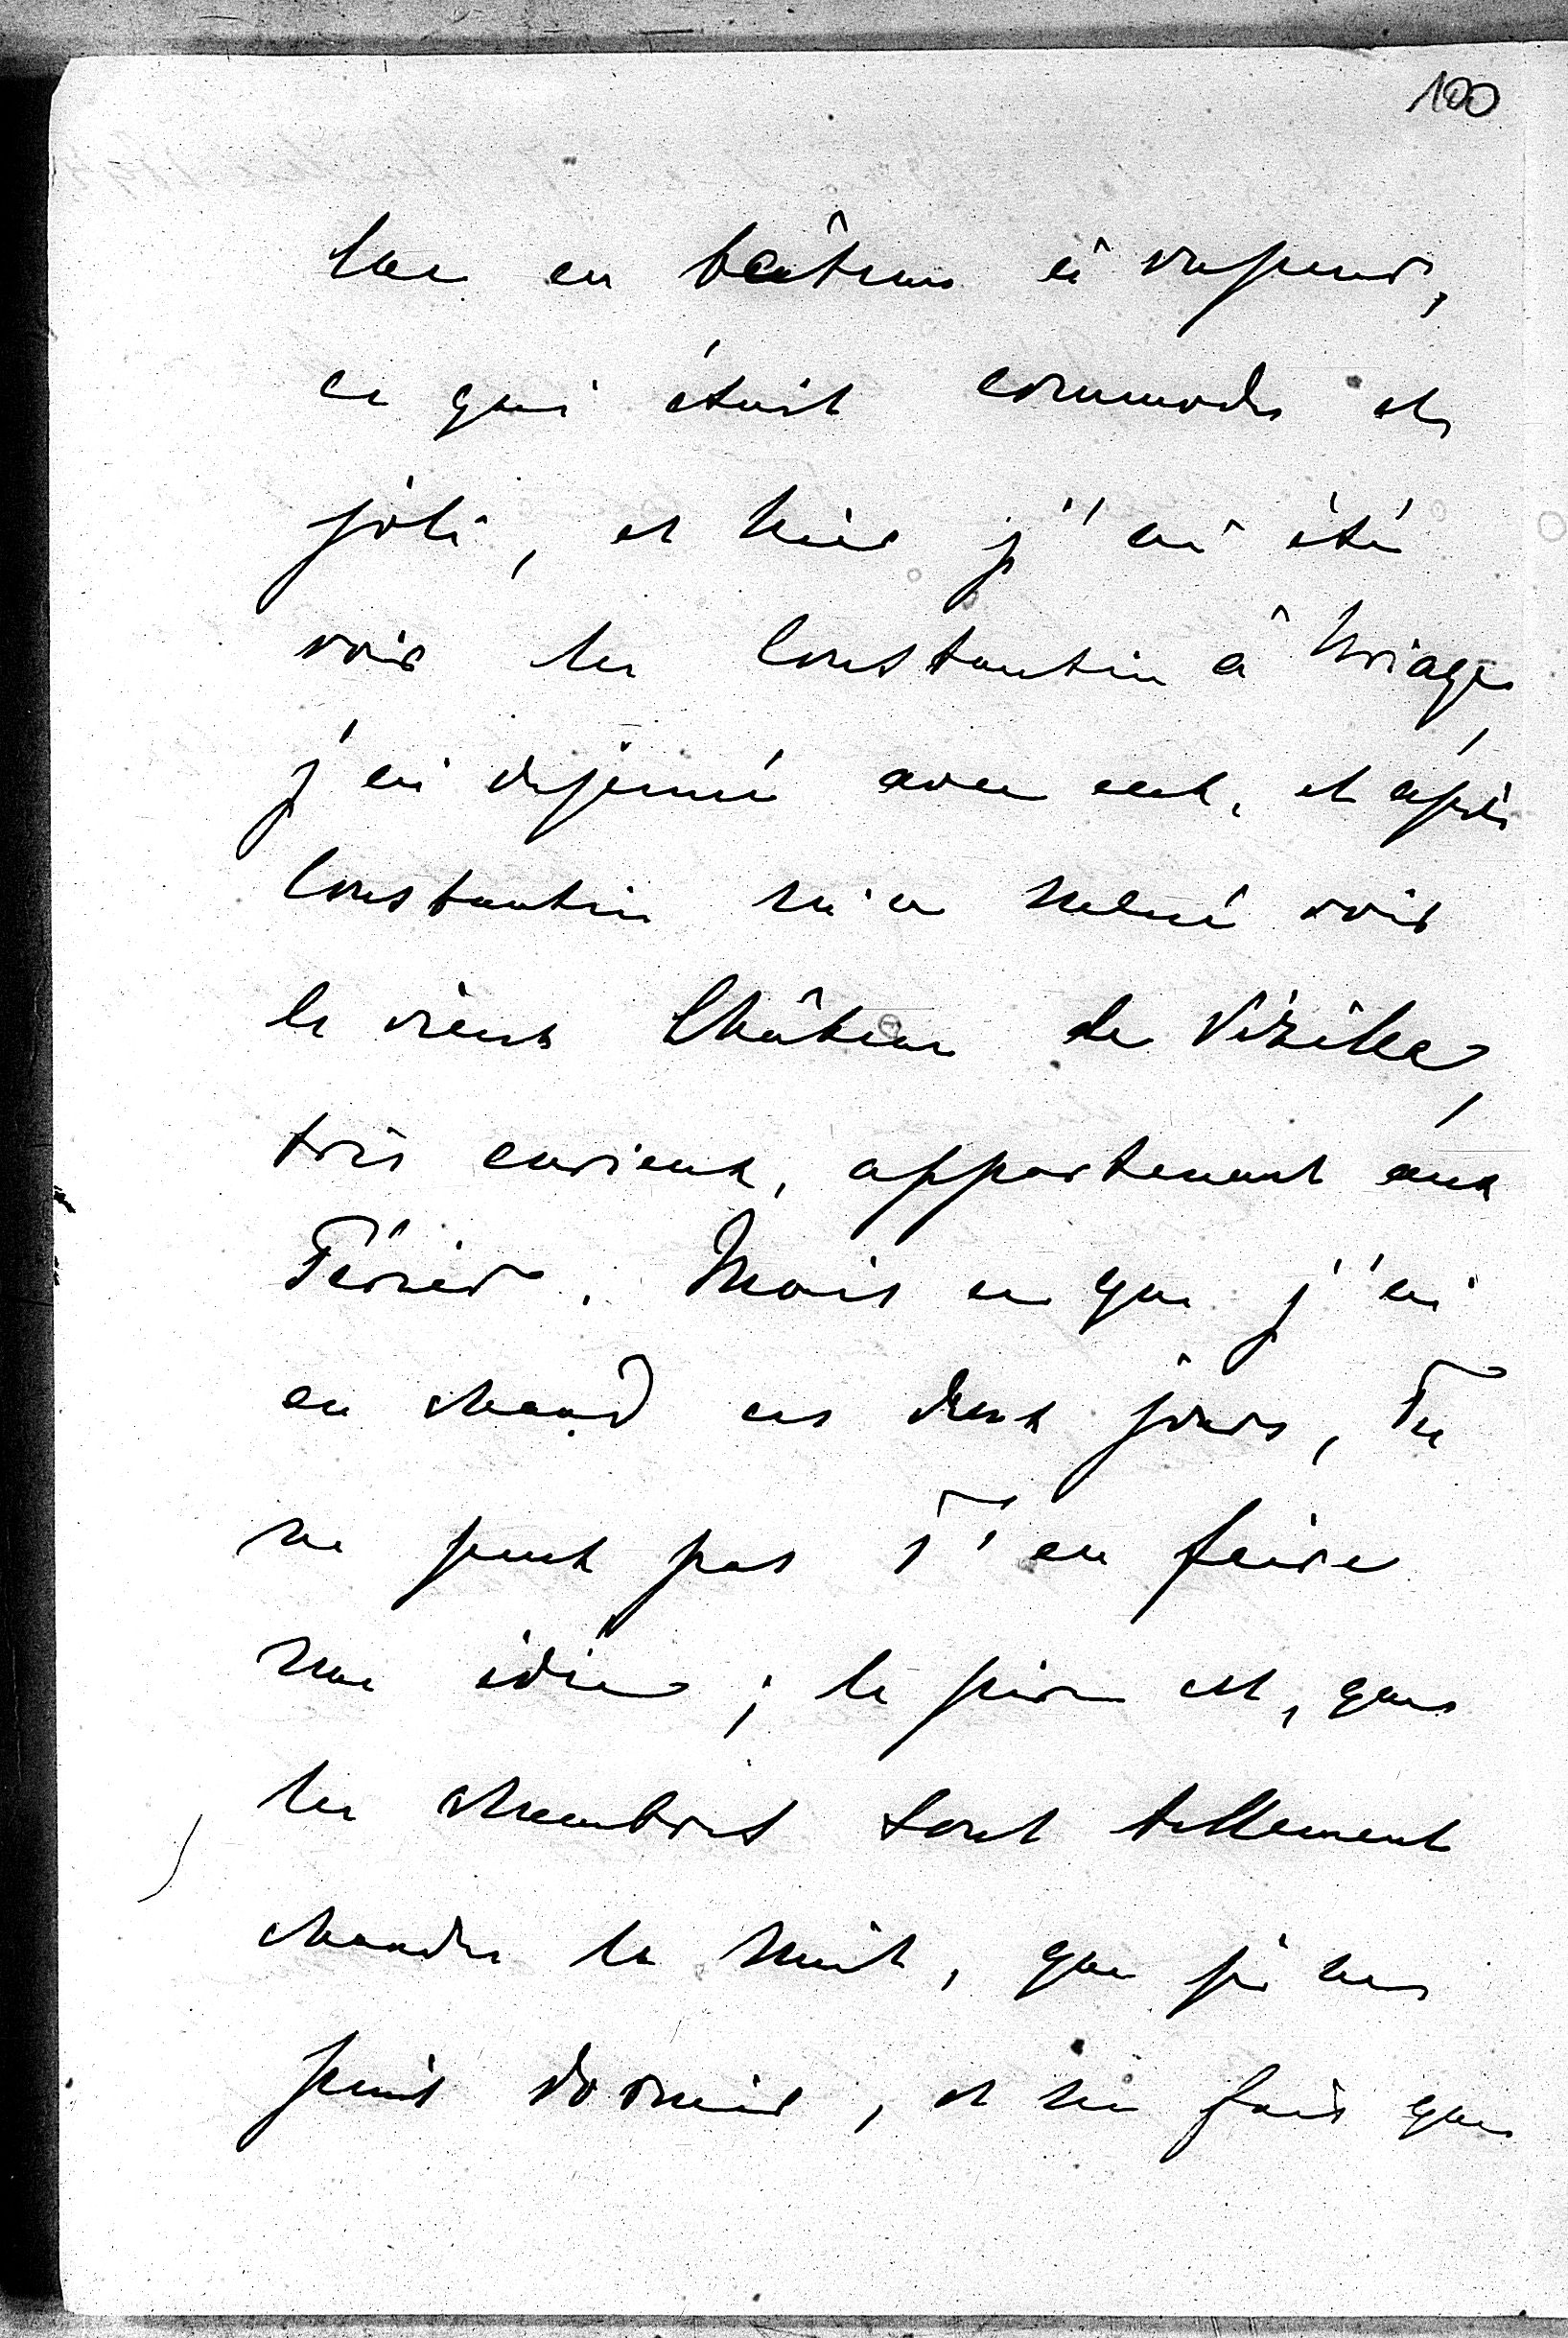 100
lac en bâteau à vapeur,
ce qui était commode et
joli, et hier j'ai été
voir les Constantin à Uriage,
j'ai dejeuné avec eux, et après
Constantin m'a mené voir
le vieux Château de Vizille,
très curieux, appartenant aux
Périer. Mais ce que j'ai
eu chaud ces deux jours, Tu
ne peux pas T'en faire
une idée ; le pire est, que
les chambres sont tellement
chaudes la nuit, que je ne
puis dormir, et ne fais que